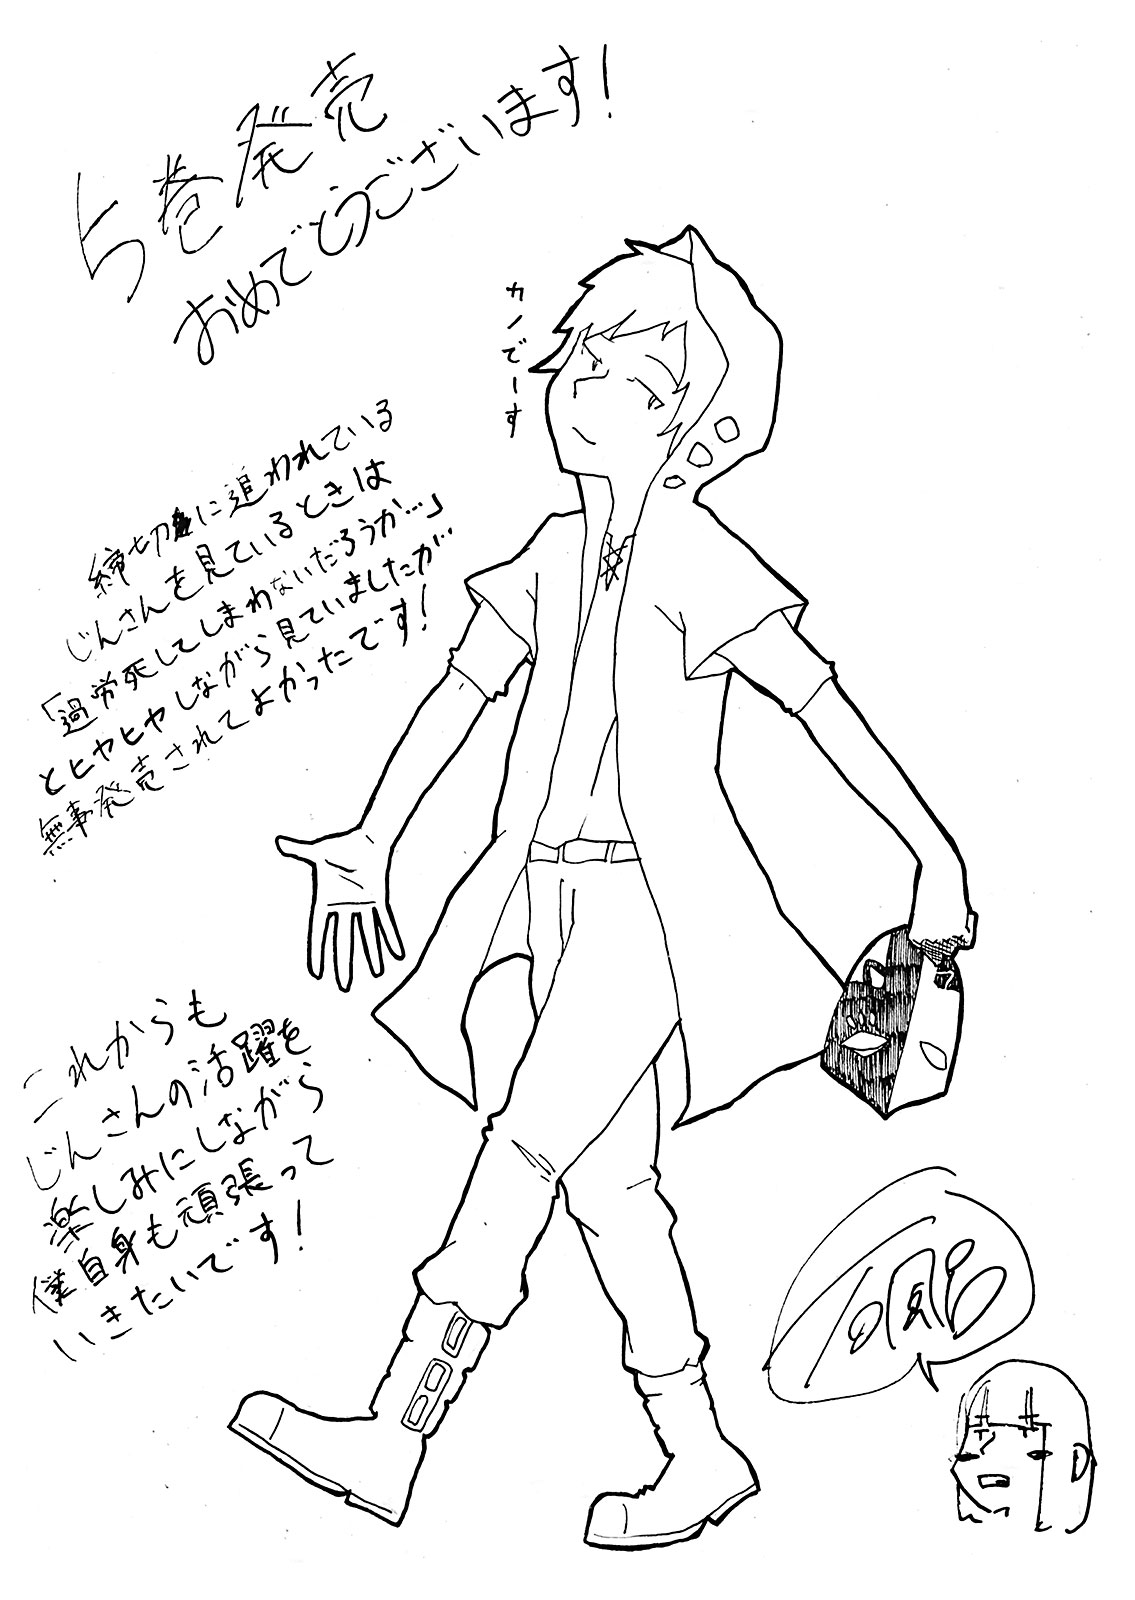 5巻発売
おめでとうございます!
カノでーす
締切に追われている
じんさんを見ているときは
「過労死してしまわないだろうか…」
とヒヤヒヤしながら見ていましたが
無事発売されてよかったです!
これからも
じんさんの活躍を
楽しみにしながら
僕自身も頑張って
いきたいです!